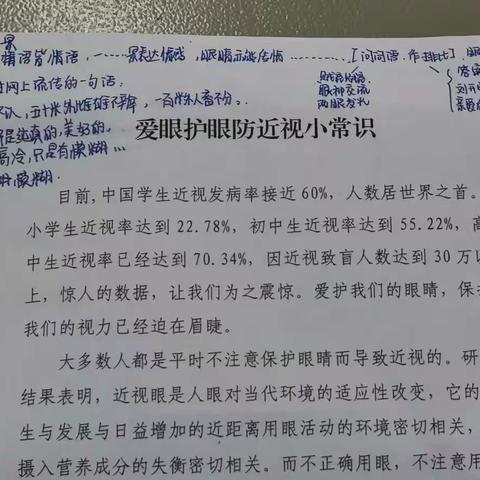 景
情语皆情语，……果表达情感，眼睛亦能传情……[问问语.作排比]
网上流传的一句话：
人，五十米雌雄不辨，一百米人畜不分。
是纯真的，美好的。
高冷，只是有模糊…
模糊.
眼神交流
两眼发礼
爱眼护眼防近视小常识
目前，中国学生近视发病率接近60%，人数居世界之首。
小学生近视率达到22.78%，初中生近视率达到55.22%，高
中生近视率已经达到70.34%，因近视致盲人数达到30万以
上，惊人的数据，让我们为之震惊。爱护我们的眼睛，保
我们的视力已经迫在眉睫。
大多数人都是平时不注意保护眼睛而导致近视的。研
结果表明，近视眼是人眼对当代环境的适应性改变，它的
生与发展与日益增加的近距离用眼活动的环境密切相关，
摄入营养成分的失衡密切相关。而不正确用眼，不注意用